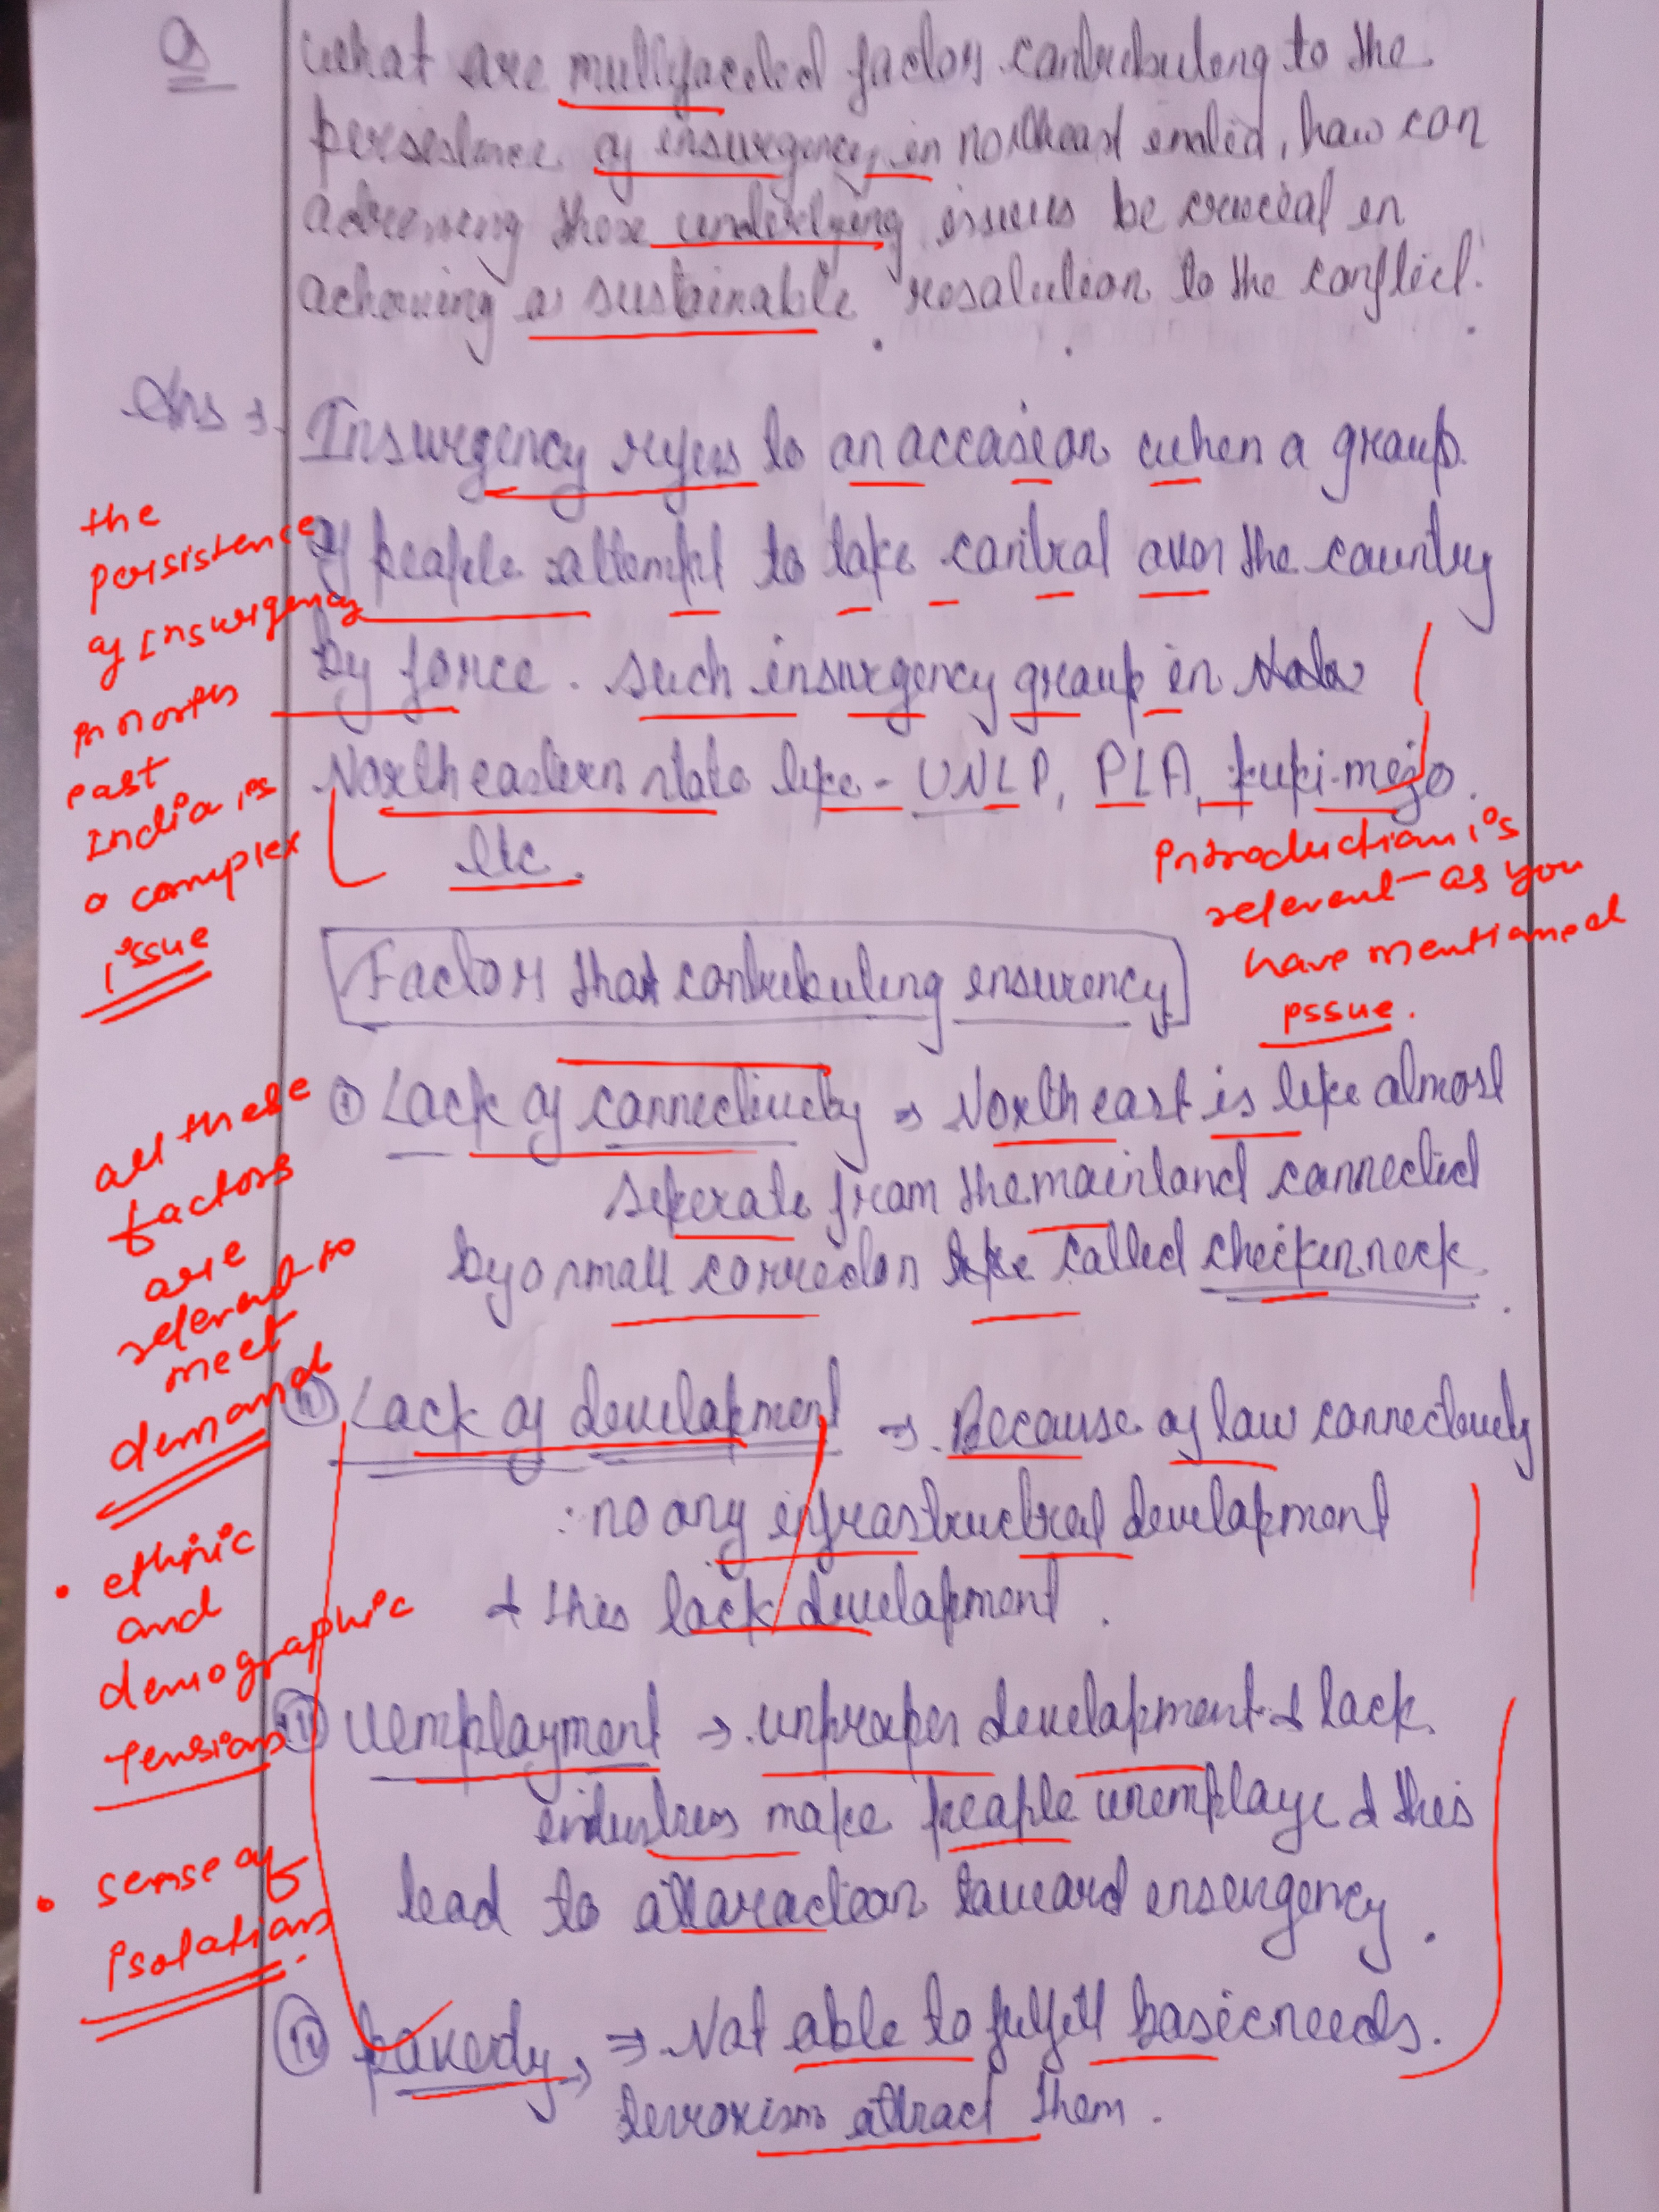 Q
what are multifaceted factors contributing to the
persistence of insurgency in northeast india, how can
addressing those underlying issues be crucial in
achieving a sustainable resolution to the conflict.
Ans →
Insurgency refers to an occasion when a group
of people attempt to take control over the country
by force. Such insurgency group in
Northeastern state like - UNLP, PLA, kuki-mezo.
etc.
the
persistence
of Insurgency
in north
east
India is
a complex
issue
Introduction is
relevent as you
have mentioned
issue.
Factors that contributing insurency
① Lack of connectivity → North east is like almost
seperate from the mainland connected
by a small corredor like called checken neck.
all these
factors
are
relevent to
meet
demand
(ii) Lack of development → Because of low connectivity
no any infrastructral development
& this lack development.
• ethnic
and
demographic
tensions
(iii) Uemployment → unproper development & lack
industries make people unemploye & this
lead to attaraction toward insurgency.
• sense of
isolations.
(iv) poverty → Not able to fulfill basic needs.
terrorism attract them.